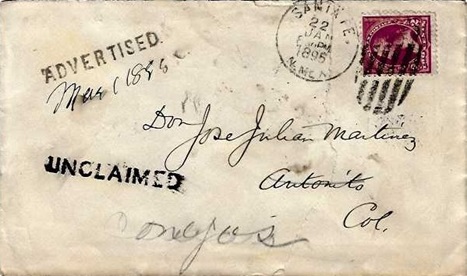 ADVERTISED.
Mar 1 1896
SANTA FE.
22
JAN
1896
N. MEX.
Don Jose Julian Martinez
UNCLAIMED
Antonito
Col.
Conejos